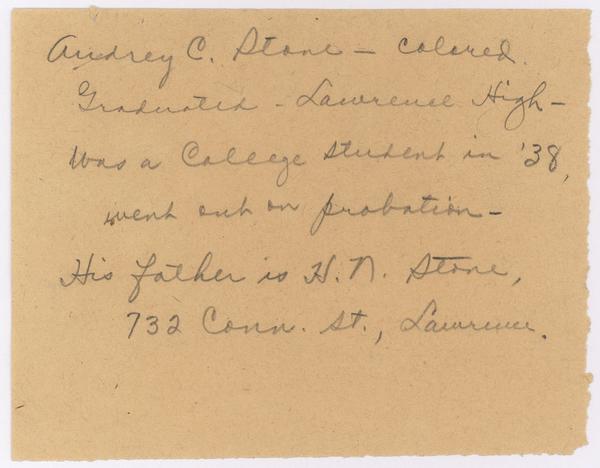 Audrey C. Stone - colored.
Graduated - Lawrence High -
Was a College student in '38,
went out on probation -
His father is H. N. Stone,
732 Conn. St., Lawrence.